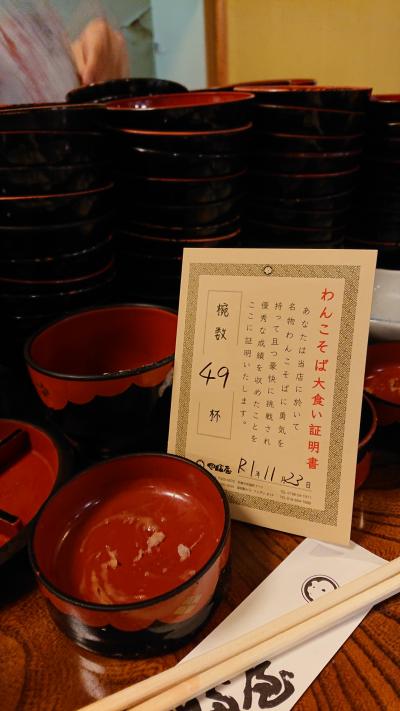 わんこそば大食い証明書
あなたは当店に於いて
名物わんこそばに勇気を
持って且つ豪快に挑戦され
優秀な成績を収めたことを
ここに証明いたします。
椀数
49
杯
R1年11月23日